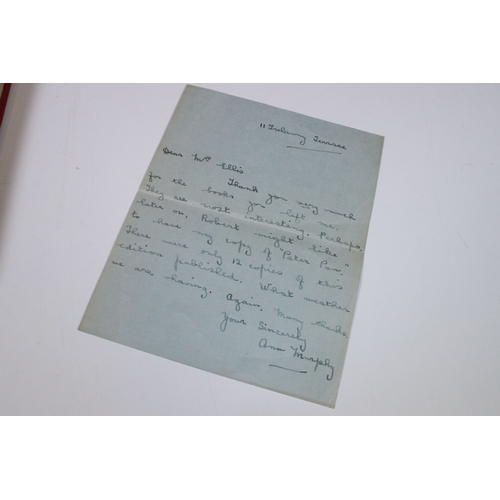 11 Terrace
Dear Mrs Ellis
Thank you very much
for the books you left me.
They are most interesting. Perhaps,
later on, Robert might like
to have my copy of "Peter Pan".
There were only 12 copies of this
edition published. What weather
we are having. Again, Many thanks
Your Sincerely
Ann Murphy